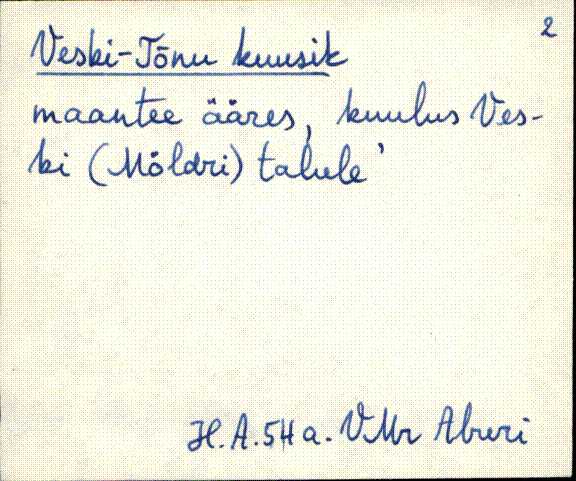 2
Veski-Tõnu kuusik
maantee ääres, kuulus Ves-
ki (Möldri) talule'
H.A. 54 a. VMr Aburi